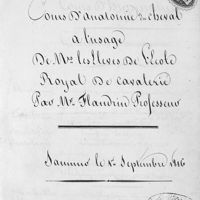 Cours D'anatomie du cheval
a l'usage
De Mrs les Eleves de l'Ecole
Royal De cavalerie
Par Mr. Flandrin Professeur
Saumur le 1er Septembre 1816